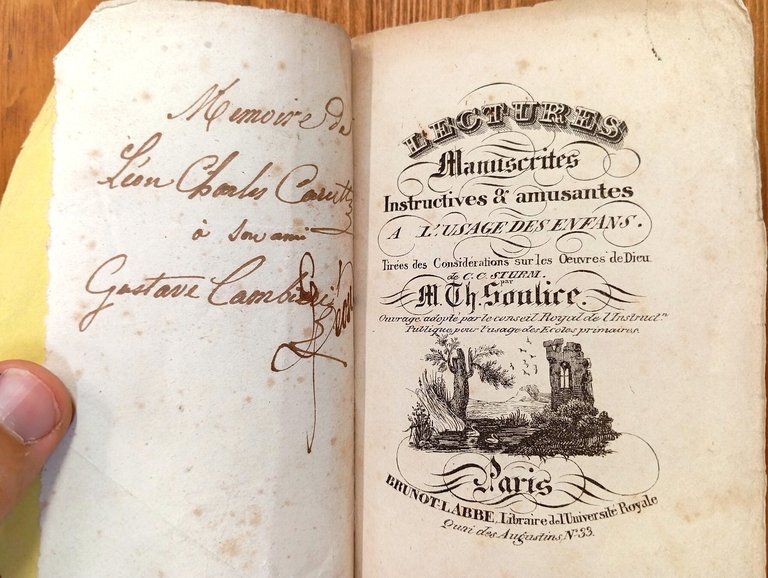 Memoire de
Léon Charles
à son ami
Gustave
LECTURES
Manuscrites
Instructives & amusantes
A L'USAGE DES ENFANS.
Tirées des Considerations sur les Oeuvres de Dieu
de C. C. STURM.
par
M. Th. Soulice.
Ouvrage adopté par le conseil Royal de l'Instruct.n
Publique, pour l'usage des Ecoles primaires.
Paris
BRUNOT-LABBE, Libraire de l'Université Royale
Quai des Augustins, No. 33.